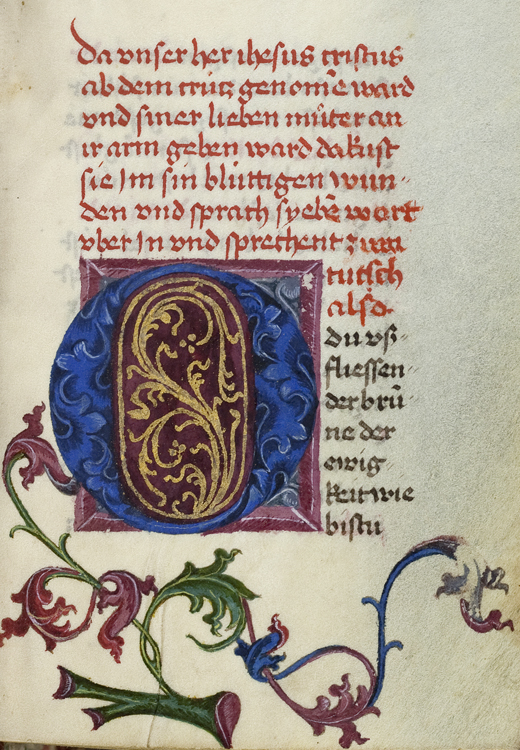 Da vnser her ihesus cristus
ab dem crütz genom̄e ward
vnd siner lieben můter an
ir arm geben ward da kust
sie Im sin blůttigen wun-
den vnd sprach syben̄ wort
vber In vnd sprechent zum
tutsch
also.
O du vß
fliessen
der brū
ne der
ewig
keit wie
bistu